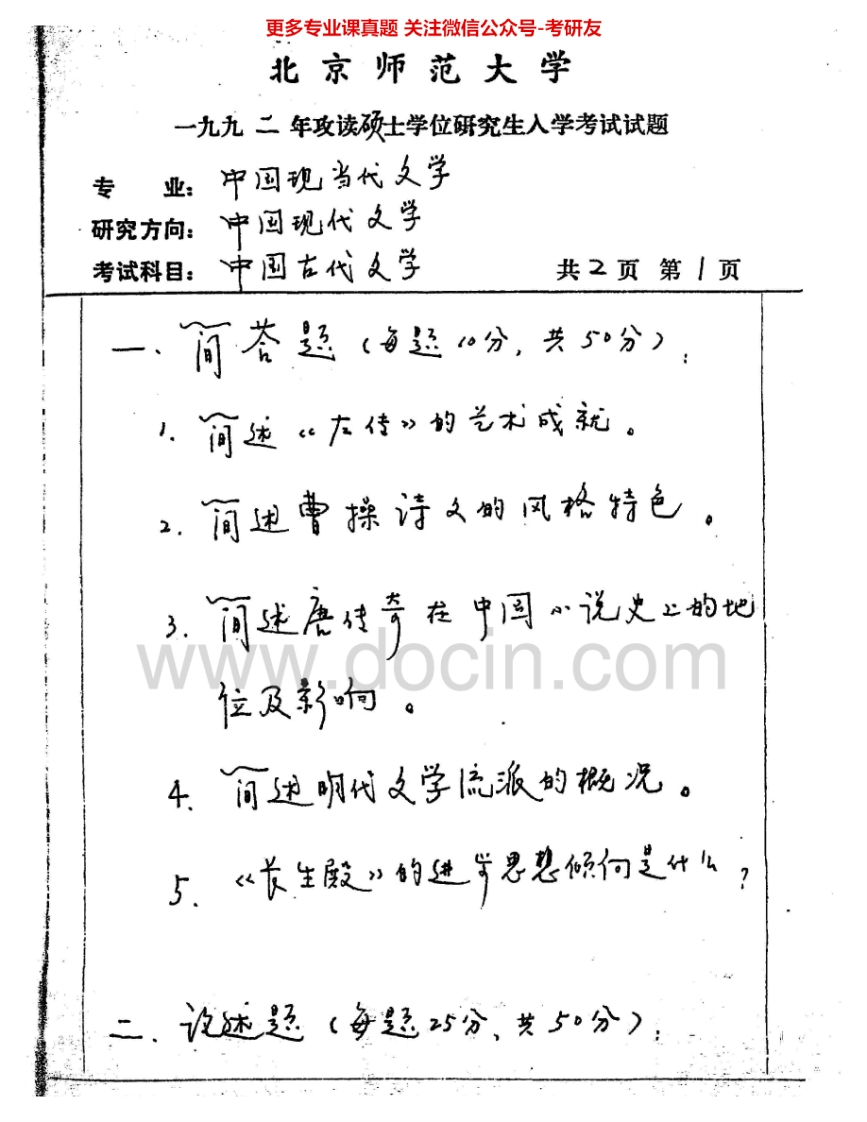 更多专业课真题 关注微信公众号-考研友
北京师范大学
一九九二年攻读硕士学位研究生入学考试试题
专 业: 中国现当代文学
研究方向: 中国现代文学
考试科目: 中国古代文学 共2页 第1页
一、简答题（每题10分，共50分）:
1. 简述《左传》的艺术成就。
2. 简述曹操诗文的风格特色。
3. 简述唐传奇在中国小说史上的地
www.docin.com
位及影响。
4. 简述明代文学流派的概况。
5. 《长生殿》的进步思想倾向是什么?
二、论述题（每题25分、共50分）: